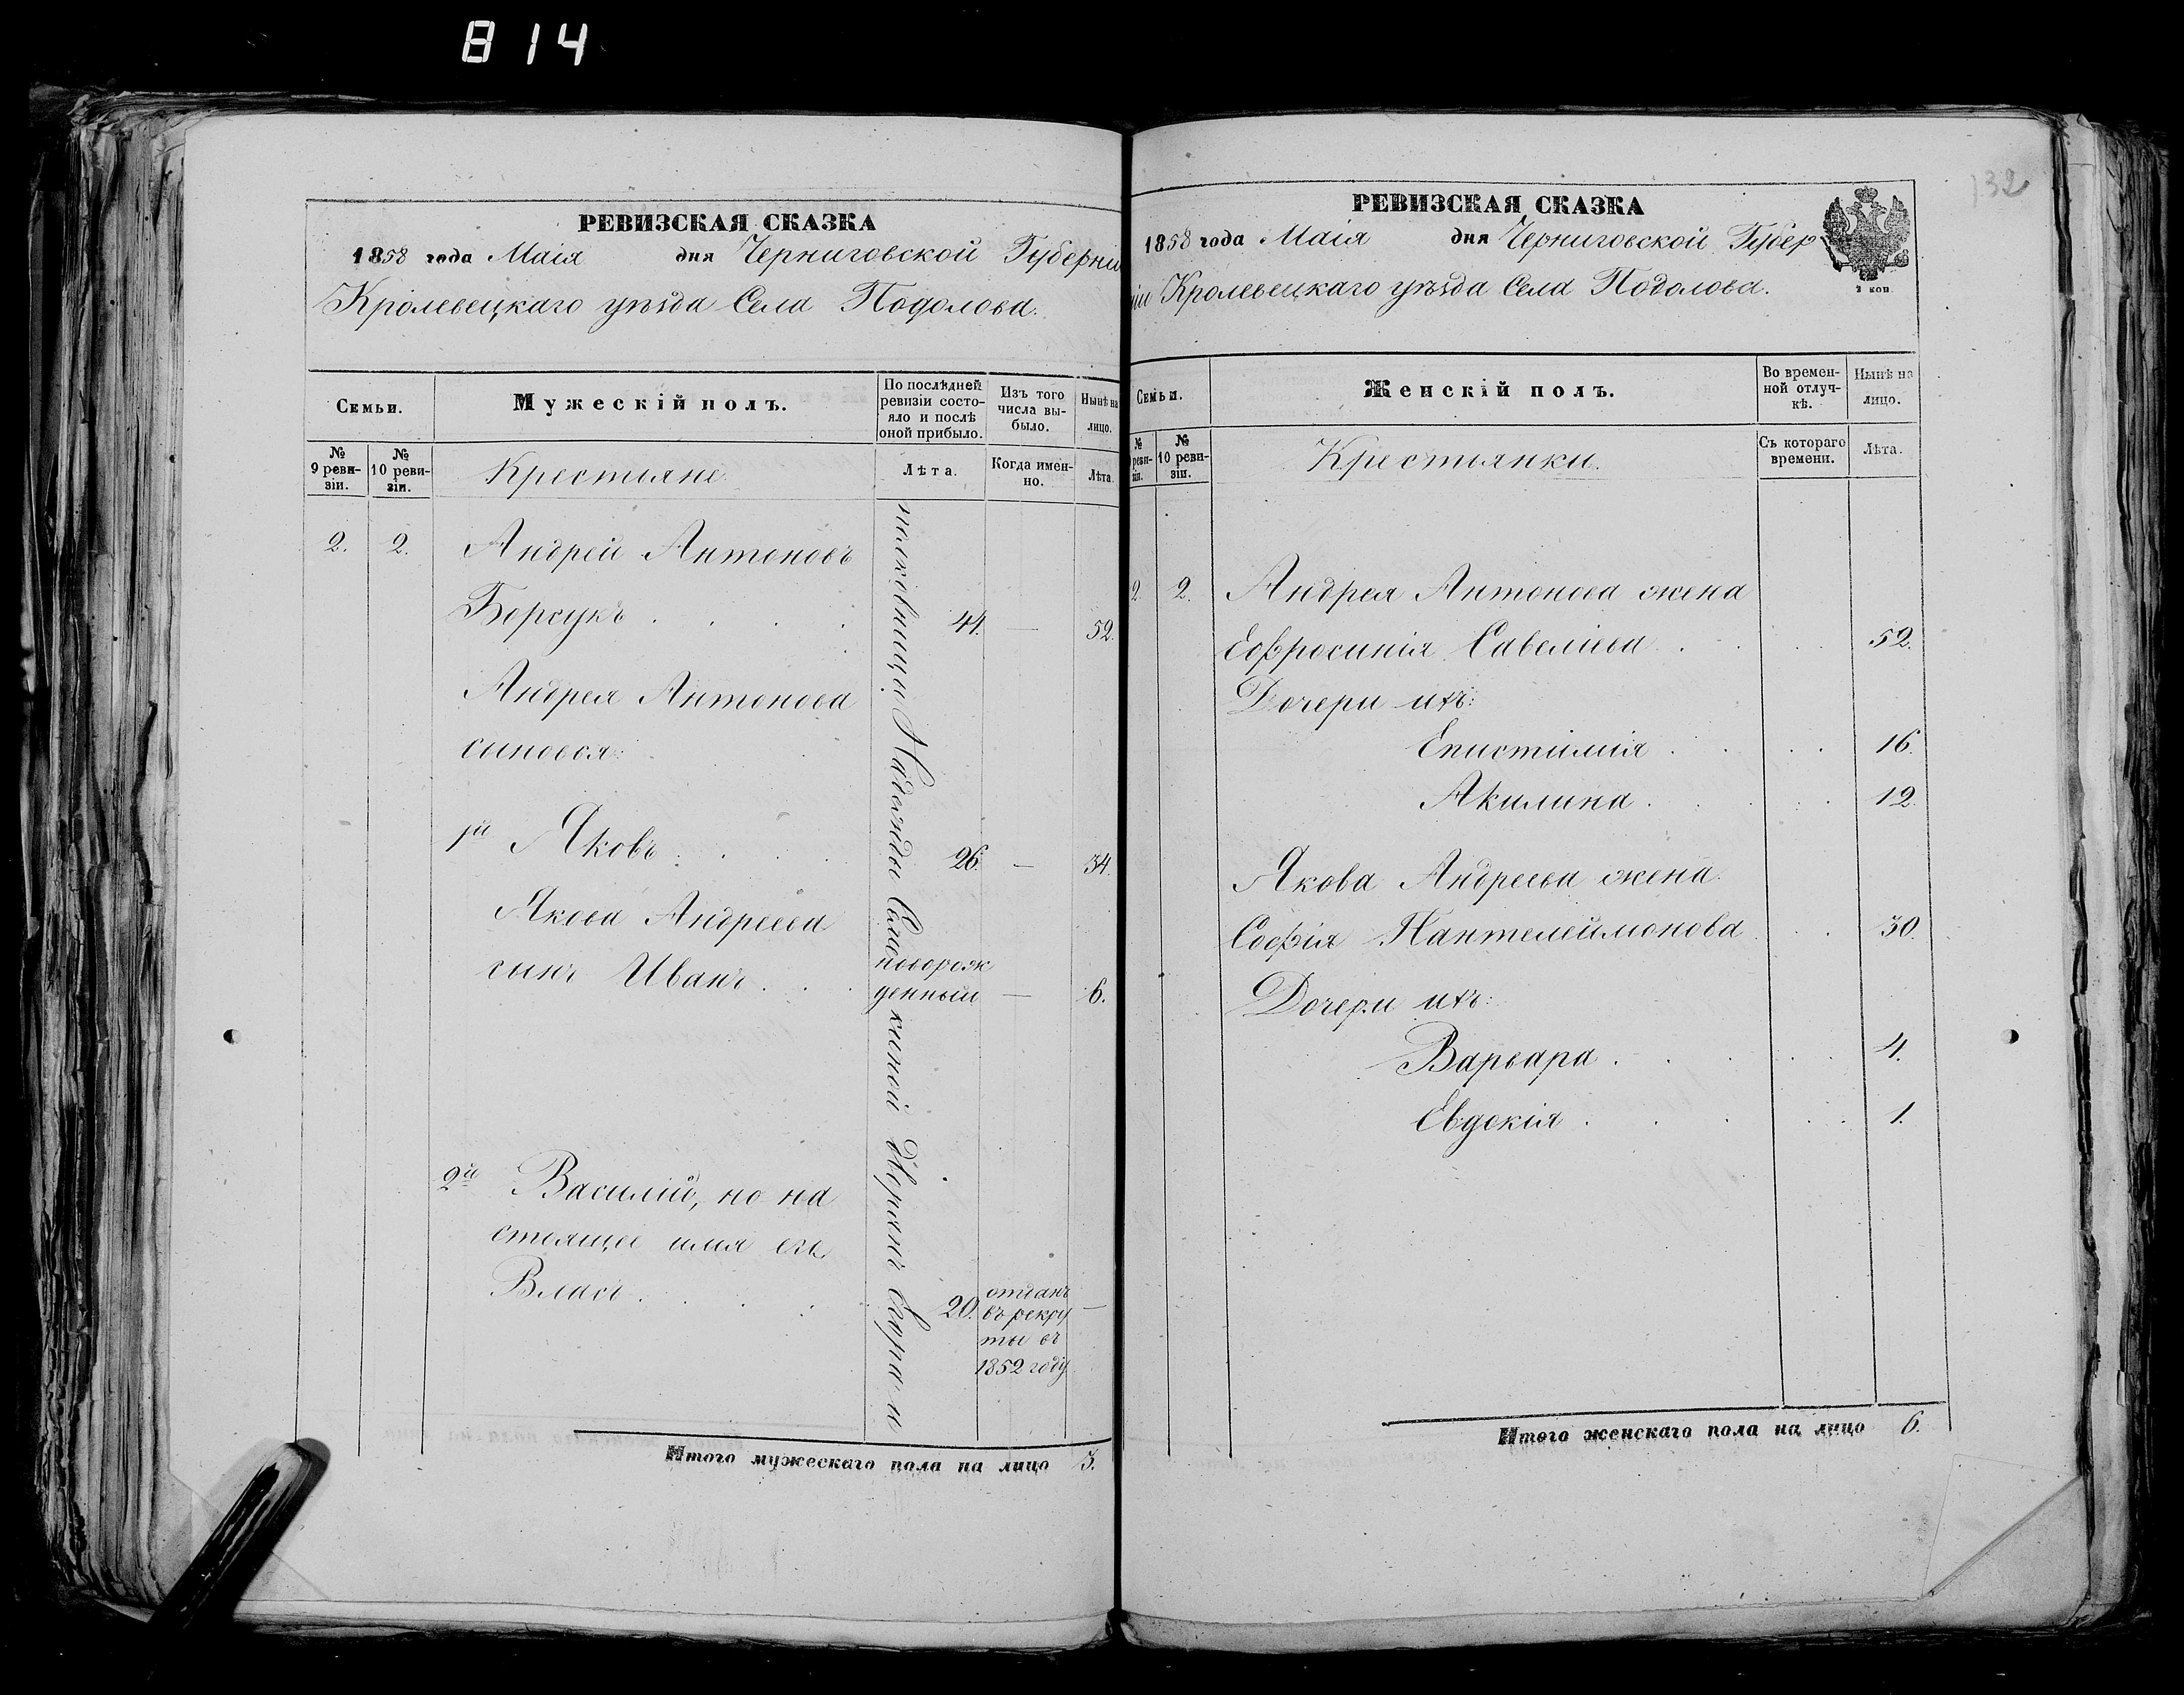 814
132
РЕВИЗСКАЯ СКАЗКА
1858 года Маія дня Черниговской Губерніи
Кролевецкаго уѣзда Села Подолова.
Семьи.
Мужескій полъ.
По послѣдней ревизіи состояло и послѣ оной прибыло.
Изъ того числа выбыло.
Нынѣ на лицо.
№ 9 ревизіи.
№ 10 ревизіи.
Крестьяне
Лѣта.
Когда именно.
Лѣта.
2. 2. Андрей Антоновъ
Борсукъ . . . . 44. — 52.
Андрея Антонова
сыновья:
1й Яковъ . . . . 26. — 34.
Якова Андреева
сынъ Иванъ . . . новорож
денный — 6.
2й Василій, но на
стоящее имя его
Власъ . . . . 20. отданъ
въ рекру
ты въ
1852 году —
полковницы Надежды
дворянъ
Итого мужескаго пола на лицо 3.
РЕВИЗСКАЯ СКАЗКА
1858 года Маія дня Черниговской Губер
ніи Кролевецкаго уѣзда Села Подолова.
2 коп.
Семьи.
Женскій полъ.
Во временной отлучкѣ.
Нынѣ на лицо.
№ 9 ревизіи.
№ 10 ревизіи.
Крестьянки.
Съ котораго времени.
Лѣта.
2. 2. Андрея Антонова жена
Ефросинія Савеліева . . . . 52.
Дочери ихъ:
Епистимія . . . . 16.
Акилина . . . . 12.
Якова Андреева жена
Софія Пантелеймонова . . . 30.
Дочери ихъ:
Варвара . . . . 4.
Евдокія . . . . 1.
Итого женскаго пола на лицо 6.